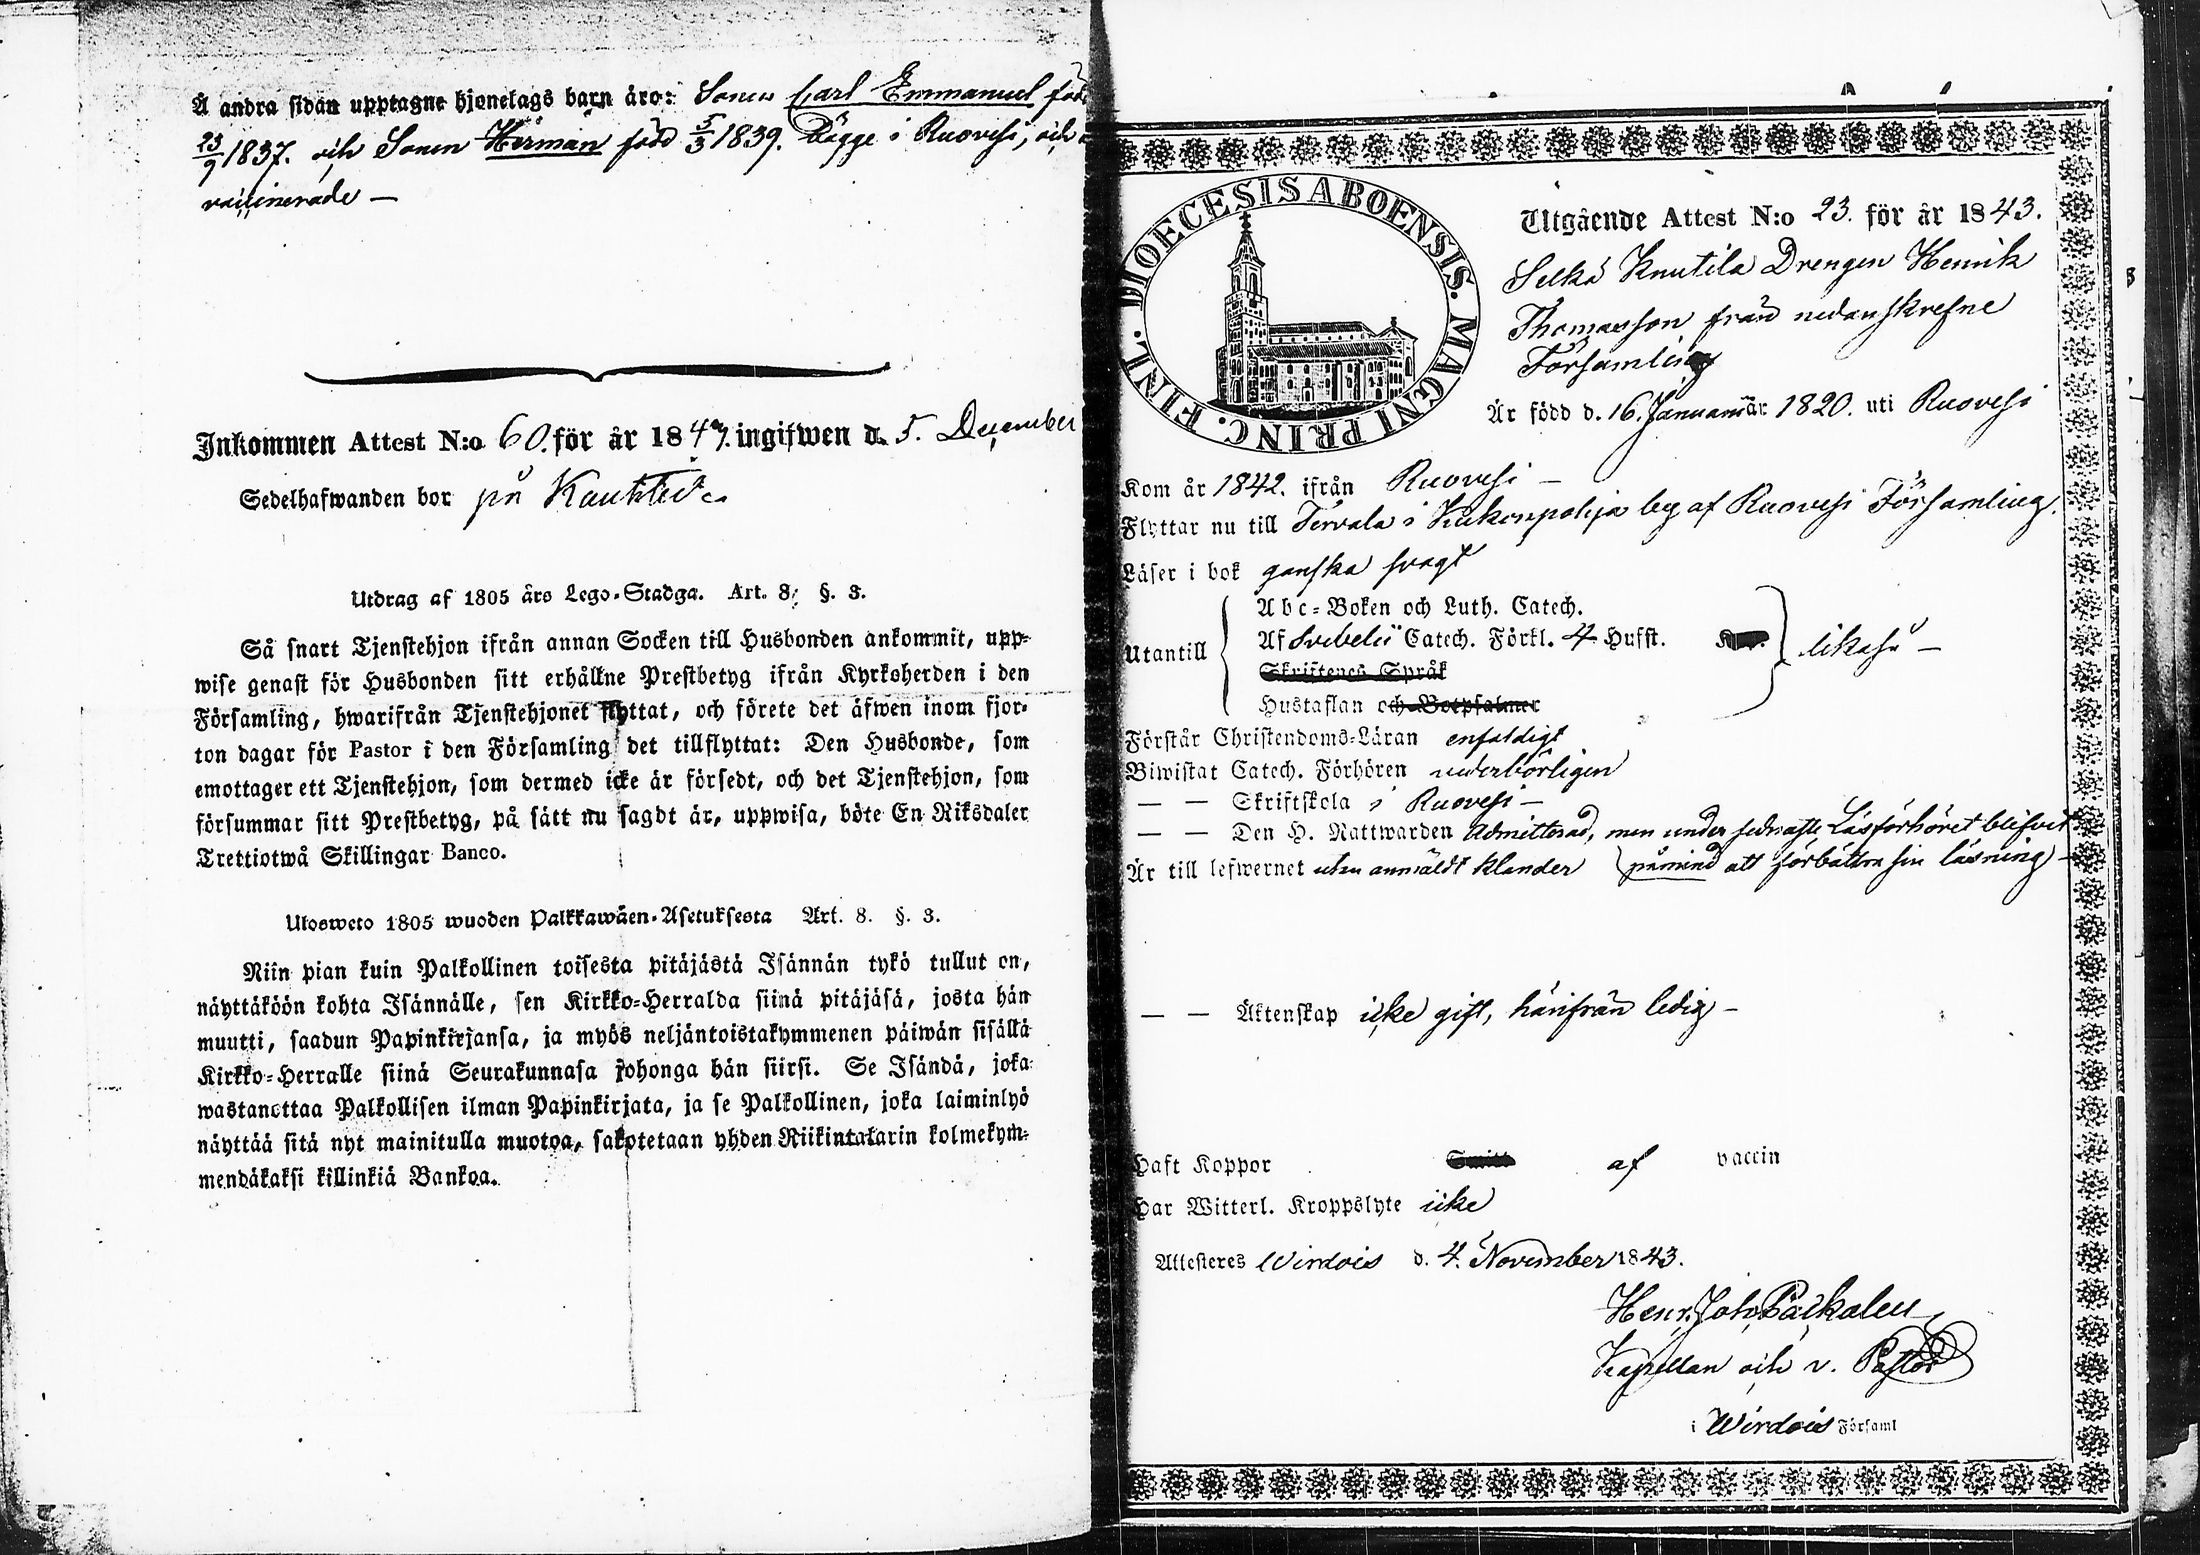 Å andra sidan upptagne hjonelags barn äro: Sonen Carl Emmanuel född
23/9 1837. och Sonen Herman född 5/3 1839. Bägge i Ruovesi, och
vaccinerade —
Inkommen Attest N:o 60. för år 184 ingifwen d. 5. December
Sedelhafwanden bor på
Utdrag af 1805 års Lego-Stadga. Art. 8. §. 3.
Så snart Tjenstehjon ifrån annan Socken till Husbonden ankommit, upp-
wise genast för Husbonden sitt erhållne Prestbetyg ifrån Kyrkoherden i den
Församling, hwarifrån Tjenstehjonet flyttat, och förete det äfwen inom fjor-
ton dagar för Pastor i den Församling det tillflyttat: Den Husbonde, som
emottager ett Tjenstehjon, som dermed icke är försedt, och det Tjenstehjon, som
försummar sitt Prestbetyg, på sätt nu sagdt är, uppwisa, böte En Riksdaler
Trettiotwå Skillingar Banco.
Ulosweto 1805 wuoden Palkkawäen-Asetuksesta Art. 8. §. 3.
Niin pian kuin Palkollinen toisesta pitäjästä Isännän tykö tullut on,
näyttäköön kohta Isännälle, sen Kirkko-Herralda siinä pitäjäsä, josta hän
muutti, saadun Papinkirjansa, ja myös neljäntoistakymmenen päiwän sisällä
Kirkko-Herralle siinä Seurakunnasa johonga hän siirsi. Se Isändä, joka
wastanottaa Palkollisen ilman Papinkirjata, ja se Palkollinen, joka laiminlyö
näyttää sitä nyt mainitulla muotoa, sakotetaan yhden Riikintalarin kolmekym-
mendäkaksi killinkiä Bankoa.
DIOECESIS ABOENSIS. MAGNI PRINC. FINL.
Utgående Attest N:o 23. för år 1843.
Selkä Knutila Drengen Henrik
Thomasson från nedanskrefne
Församling
Är född d. 16. Januari år 1820. uti Ruovesi
Kom år 1842. ifrån Ruovesi —
Flyttar nu till Tervala i Kukonpohja by af Ruovesi Församling.
Läser i bok ganska svagt
Abc-Boken och Luth. Catech.
Utantill Af Svebelii Catech. Förkl. 4 Hufst. likaså —
Skriftenes Språk
Hustaflan och Botpsalmer
Förstår Christendoms-Läran enfaldigt
Biwistat Catech. Förhören vederbörligen
— — Skriftskola i Ruovesi —
— — Den H. Nattwarden admitterad, men under sednaste Läsförhöret blifvit
Är till lefwernet utan anmäldt klander påmind att förbättra sin läsning —
— — Äktenskap icke gift, härifrån ledig —
Haft Koppor af vaccin
Har Witterl. Kroppslyte icke
Attesteres Wirdois d. 4. November 1843.
Henr. Joh. Päikalen
Kapellan och v. Pastor
i Wirdois Församl